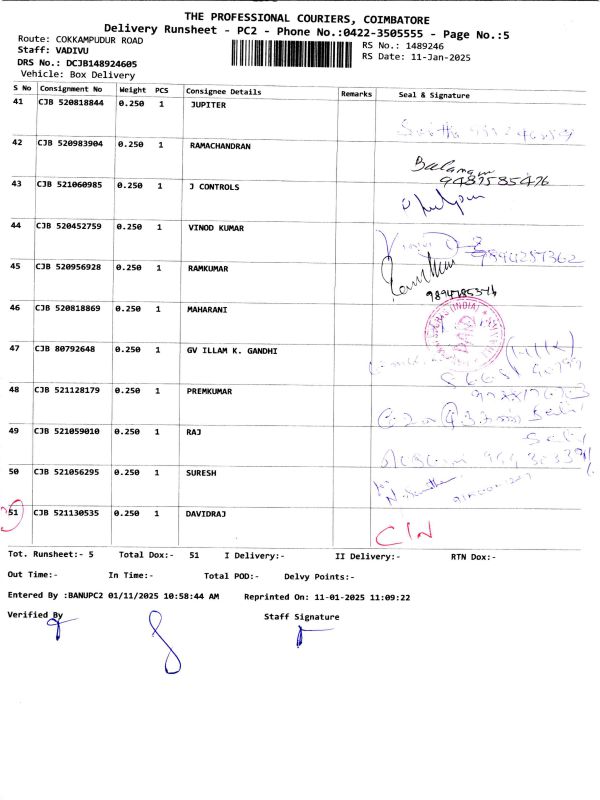 THE PROFESSIONAL COURIERS, COIMBATORE
Delivery Runsheet - PC2 - Phone No.:0422-3505555 - Page No.:5
Route: COKKAMPUDUR ROAD
RS No.: 1489246
Staff: VADIVU
RS Date: 11-Jan-2025
DRS No.: DCJB148924605
Vehicle: Box Delivery
S No Consignment No Weight PCS Consignee Details Remarks Seal & Signature
41 CJB 520818844 0.250 1 JUPITER
42 CJB 520983904 0.250 1 RAMACHANDRAN
Balaram
9487585476
43 CJB 521060985 0.250 1 J CONTROLS
44 CJB 520452759 0.250 1 VINOD KUMAR
9894287362
45 CJB 520956928 0.250 1 RAMKUMAR
46 CJB 520818869 0.250 1 MAHARANI
47 CJB 80792648 0.250 1 GV ILLAM K. GANDHI
48 CJB 521128179 0.250 1 PREMKUMAR
49 CJB 521059010 0.250 1 RAJ
50 CJB 521056295 0.250 1 SURESH
51 CJB 521130535 0.250 1 DAVIDRAJ
Tot. Runsheet:- 5 Total Dox:- 51 I Delivery:- II Delivery:- RTN Dox:-
Out Time:- In Time:- Total POD:- Delvy Points:-
Entered By :BANUPC2 01/11/2025 10:58:44 AM Reprinted On: 11-01-2025 11:09:22
Verified By Staff Signature